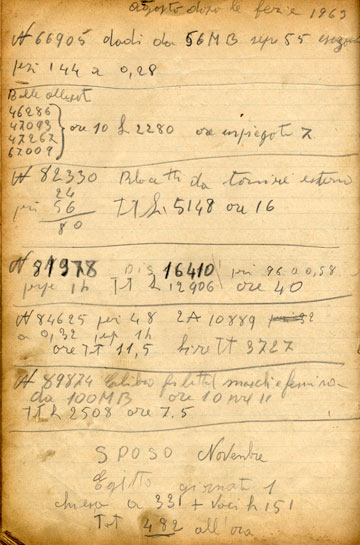 agosto dopo le ferie 1963
N 66905 dadi da 56MB sepr 55
per 144 a 0,28
Bolle allegat
46286
47093
47267
67009
ore 10 L 2280 ore impiegate 7
N 82330 Blocchetti da tornire esterno
24
per 56
80
TT L 5148 ore 16
N 81978 Dis 16410 per 96 a 0,58
prep 1h TT L 12906 ore 40
N 84625 per 48 2A 10889
a 0,32 prep 1h
ore TT 11,5 Lire TT 3727
N 89874 Calibro filettat maschio femina
da 100MB ore 10
TT L 2508 ore 7.5
SPOSO Novembre
Egitto giornate 1
chiesa a 331 + Voci h 151
TT 482 all'ora